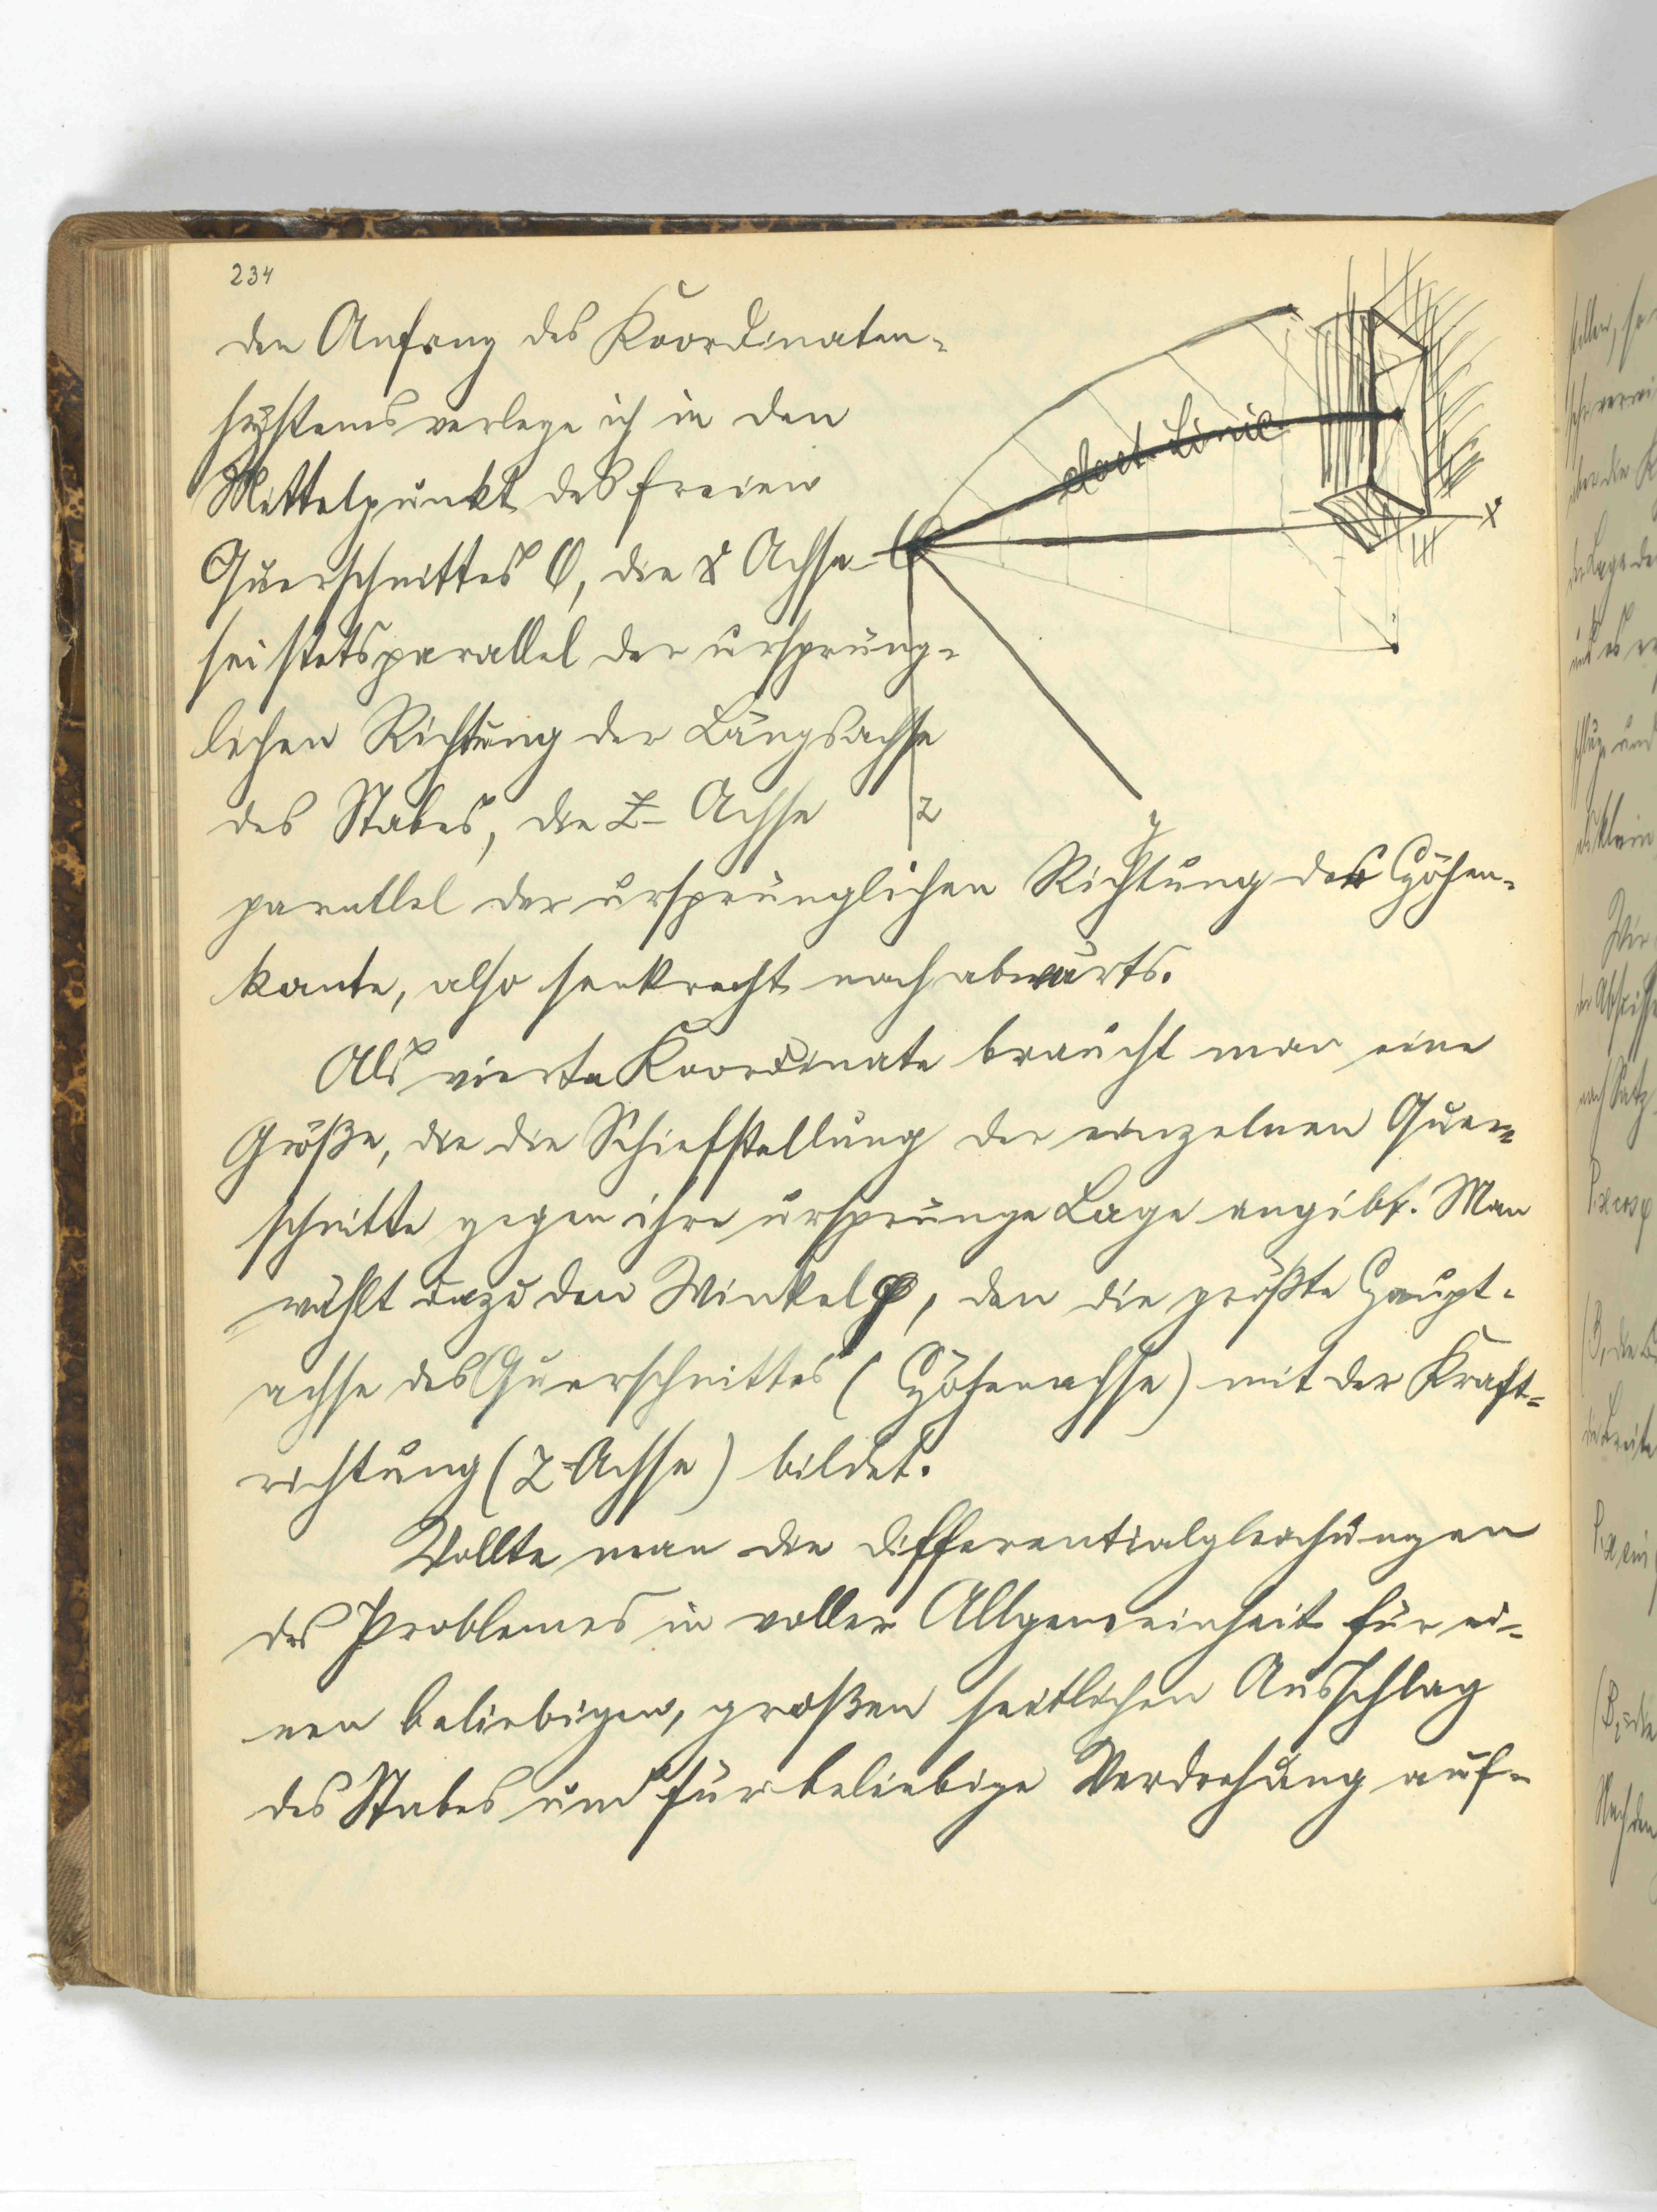 234
den Anfang des Koordinaten-
systems verlege ich in den
Mittelpunkt des freien
Querschnittes O, die X Achse
sei stets parallel der ursprüng-
lichen Richtung der Längsachse
des Stabes, die Z- Achse
parallel der ursprünglichen Richtung der Höhen-
kante, also senkrecht nach abwärts.
elast. Linie
X
Z
y
Als vierte Koordinate braucht man eine
Größe, die die Schiefstellung der einzelnen Quer-
schnitte gegen ihre ursprünge Lage angibt. Man
wählt dazu den Winkel φ, den die größte Haupt-
achse des Querschnittes (Höhenachse) mit der Kraft-
richtung (Z-Achse) bildet.
Wollte man die Differentialgleichungen
des Problemes in voller Allgemeinheit für ei-
nen beliebigen, großen seitlichen Ausschlag
des Stabes und für beliebige Verdrehung auf-